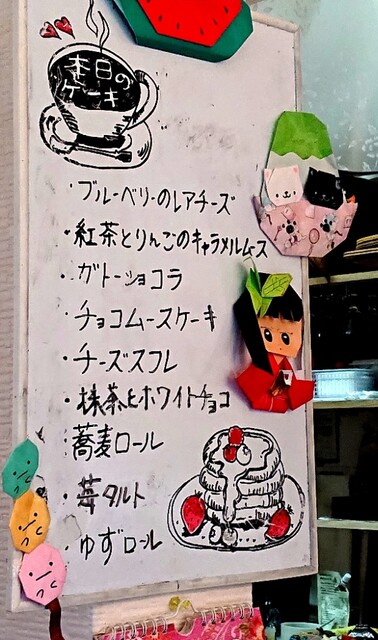 本日の
ケーキ
・ブルーベリーのレアチーズ
・紅茶とりんごのキャラメルムース
・ガトーショコラ
・チョコムースケーキ
・チーズスフレ
・抹茶とホワイトチョコ
・蕎麦ロール
・苺タルト
・ゆずロール